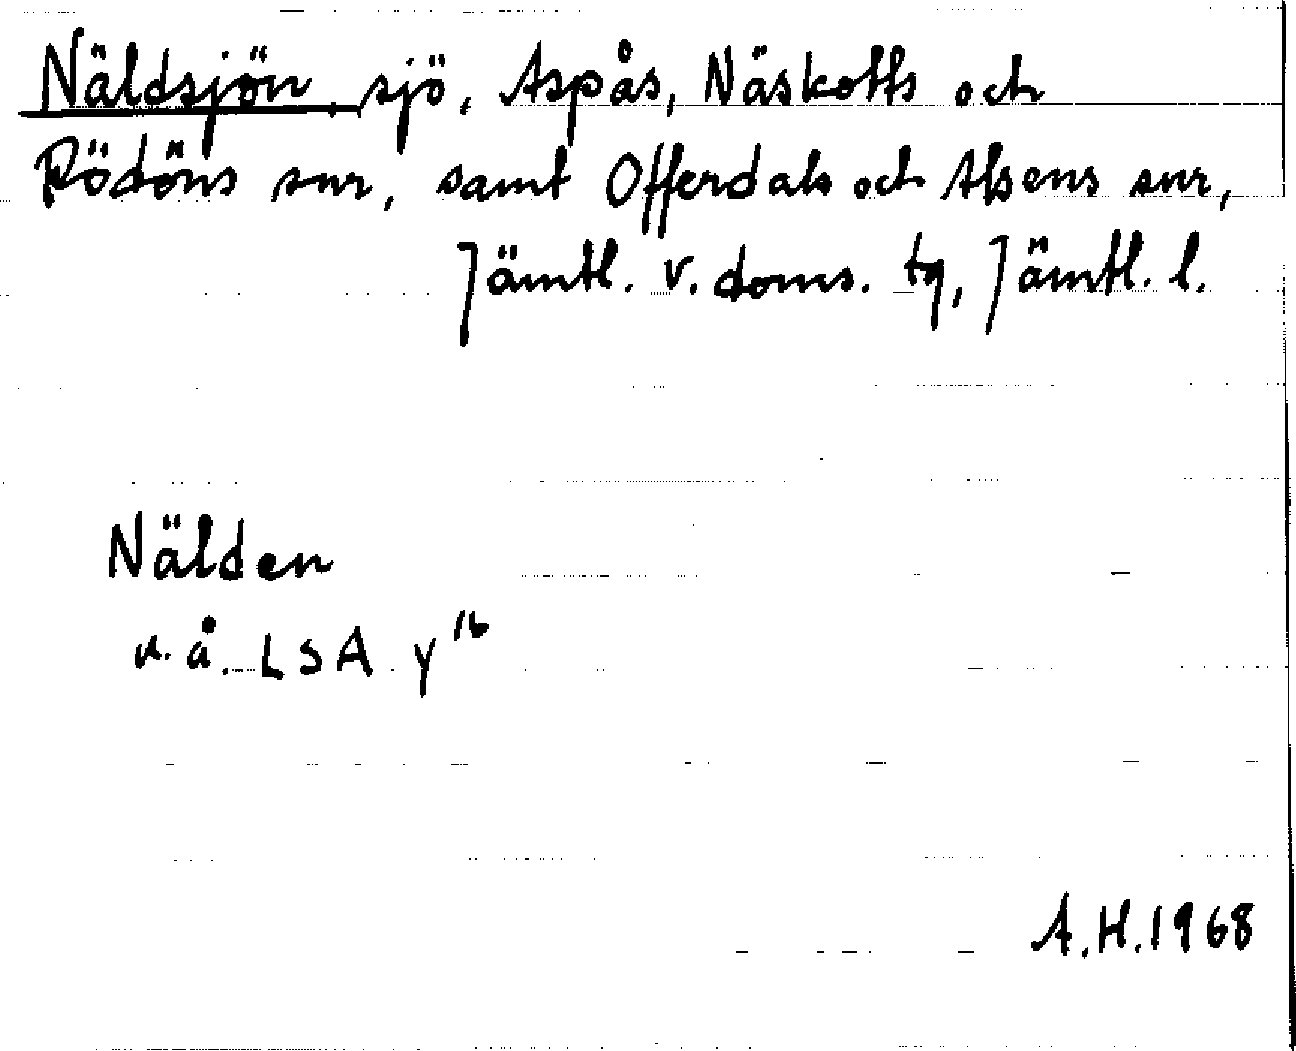 Näldsjön, sjö, Aspås, Näskotts och
Rödöns snr, samt Offerdals och Alsens snr,
Jämtl. v. doms. tg, Jämtl. l.
Nälden
u. å. LSA y 16
A.H. 1968